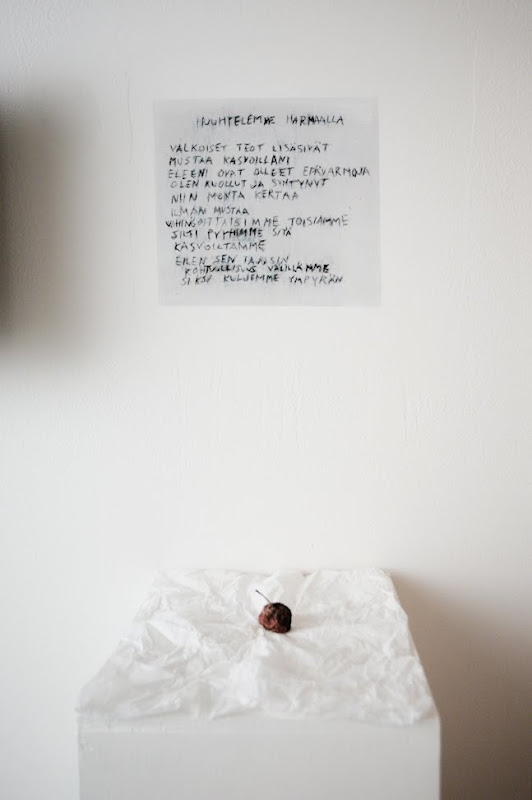 HUUHTELEMME HARMAALLA
VALKOISET TEOT LISÄSIVÄT
MUSTAA KASVOILLANI
ELEENI OVAT OLLEET EPÄVARMOJA
OLEN KUOLLUT JA SYNTYNYT
NIIN MONTA KERTAA
ILMAN MUSTAA
VAHINGOITTAISIMME TOISIAMME
SILTI PYYHIMME SITÄ
KASVOILTAMME
EILEN SEN TAJUSIN
KOHTUULLISUUS VÄLILLÄMME
SIKSI KULJEMME YMPYRÄN